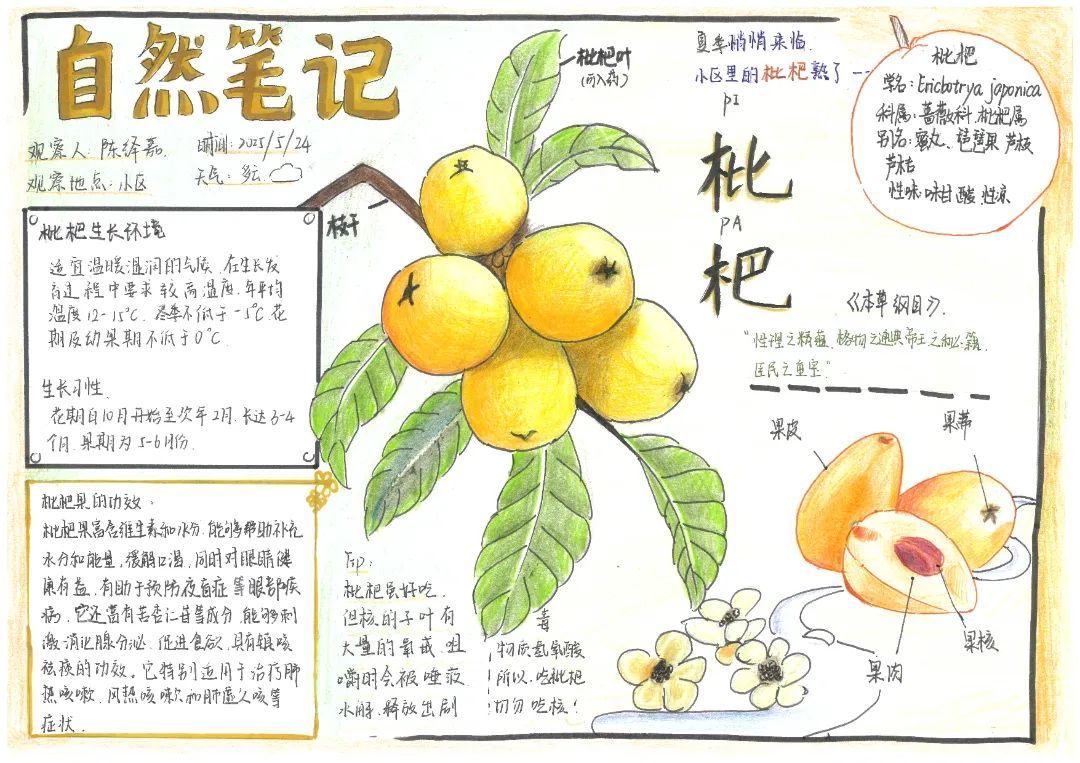 自然笔记
观察人: 陈绎嘉
时间: 2025/5/24
观察地点: 小区
天气: 多云
枇杷生长环境
适宜温暖湿润的气候,在生长发
育过程中要求较高温度,年平均
温度12-15℃,冬季不低于-5℃,花
期及幼果期不低于0℃.
生长习性.
花期自10月开始至次年2月,长达3-4
个月.果期为5-6月份.
枇杷果的功效:
枇杷果富含维生素和水分,能够帮助补充
水分和能量,缓解口渴,同时对眼睛健
康有益,有助于预防夜盲症等眼部疾
病,它还富有苦杏仁苷等成分,能够刺
激消化腺分泌,促进食欲,具有镇咳
祛痰的功效。它特别适用于治疗肺
热咳嗽、风热咳嗽和肺虚久咳等
症状.
枇杷叶
(可入药)
枝干
夏季悄悄来临.
小区里的枇杷熟了---
PI
枇
PA
杷
枇杷
学名: Ericbotrya japonica
科属: 蔷薇科.枇杷属
别名: 蜜丸、琵琶果 芦枝
芦桔
性味:味甘酸,性凉
《本草纲目》.
"性理之精蕴、格物之通典,帝王之秘籍,
臣民之重宝."
果皮
果蒂
果肉
果核
Tip:
枇杷虽好吃,
但核的子叶有
大量的氧
咀
嚼时会被唾液
水解,释放出剧
毒
物质氢氰酸
所以.吃枇杷
切勿吃核!